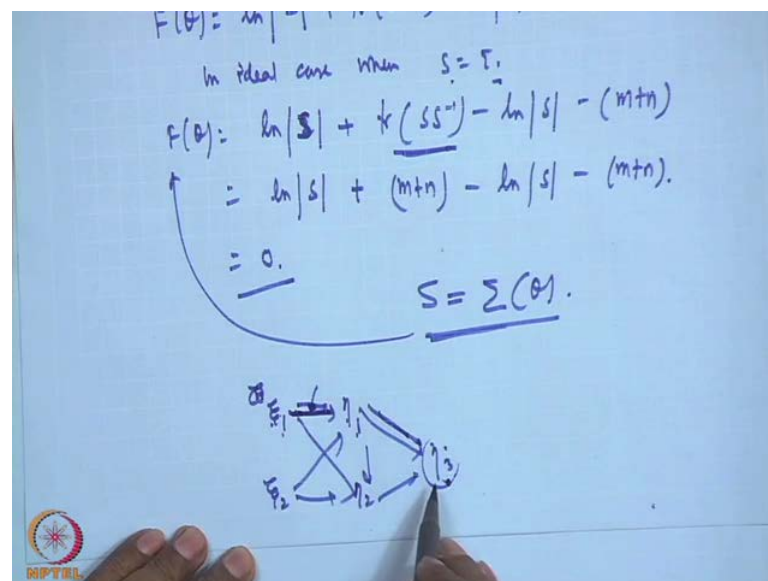 F(θ) = ln| | + tr( ) -
In ideal case when S = Σ.
F(θ) = ln|S| + tr(SS⁻¹) - ln|S| - (m+n)
= ln|S| + (m+n) - ln|S| - (m+n).
= 0.
S = Σ(θ).
ξ₁ η₁
η₃
ξ₂ η₂
NPTEL